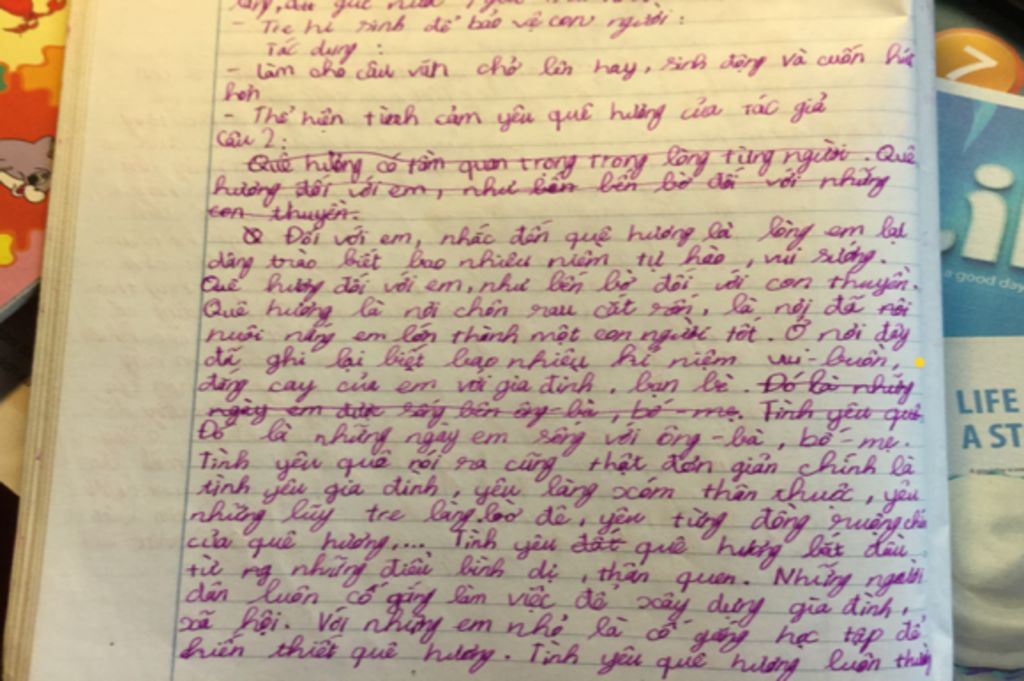 - Tre hi sinh để bảo vệ con người :
Tác dụng :
- Làm cho câu văn chở lên hay, sinh động và cuốn hút
hơn
- Thể hiện tình cảm yêu quê hương của tác giả
Câu 2 :
Quê hương có tầm quan trọng trong lòng từng người. Quê
hương đối với em, như bến bờ đối với những
con thuyền.
Đối với em, nhắc đến quê hương là lòng em lại
dâng trào biết bao nhiêu niềm tự hào, vui sướng.
Quê hương đối với em, như bến bờ đối với con thuyền.
Quê hương là nơi chôn rau cắt rốn, là nơi đã nôi
nuôi nấng em lớn thành một con người tốt. Ở nơi đây
đã ghi lại biết bao nhiêu kỉ niệm vui-buồn,
đắng cay của em với gia đình, bạn bè. Đó là những
ngày em được sống bên ông-bà, bố-mẹ. Tình yêu quê
Đó là những ngày em sống với ông-bà, bố-mẹ.
Tình yêu quê nói ra cũng thật đơn giản chính là
tình yêu gia đình, yêu làng xóm thân thuộc, yêu
những lũy tre làng, bờ đê, yêu từng đồng ruộng
của quê hương,... Tình yêu đất quê hương bắt đầu
từ ng những điều bình dị, thân quen. Những người
dân luôn cố gắng làm việc để xây dựng gia đình,
xã hội. Với những em nhỏ là cố gắng học tập để
kiến thiết quê hương. Tình yêu quê hương luôn
7
Lif
a good day
LIFE
A ST